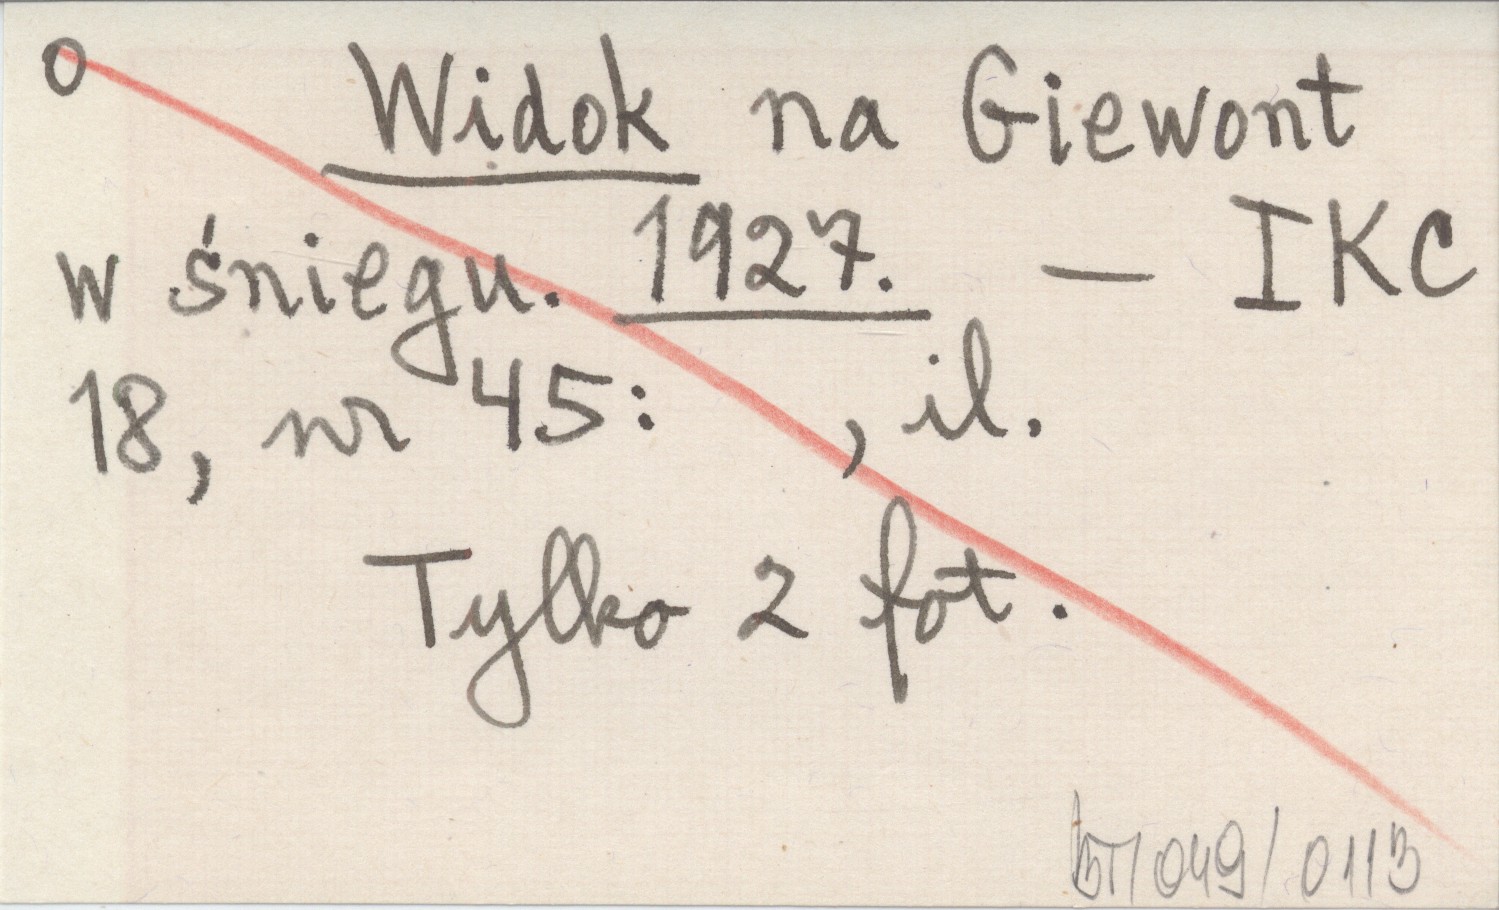 O Widok na Giewont
w śniegu. 1927. — IKC
18, nr 45: , il.
Tylko 2 fot.
049/0113